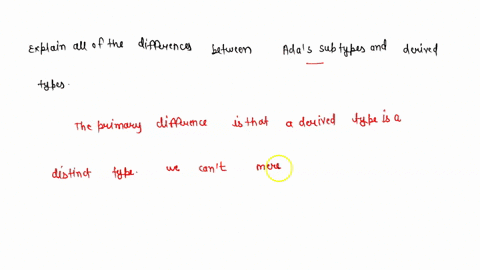 Explain all of the differences between Ada's subtypes and derived
types.
The primary difference is that a derived type is a
distinct type. we can't mere